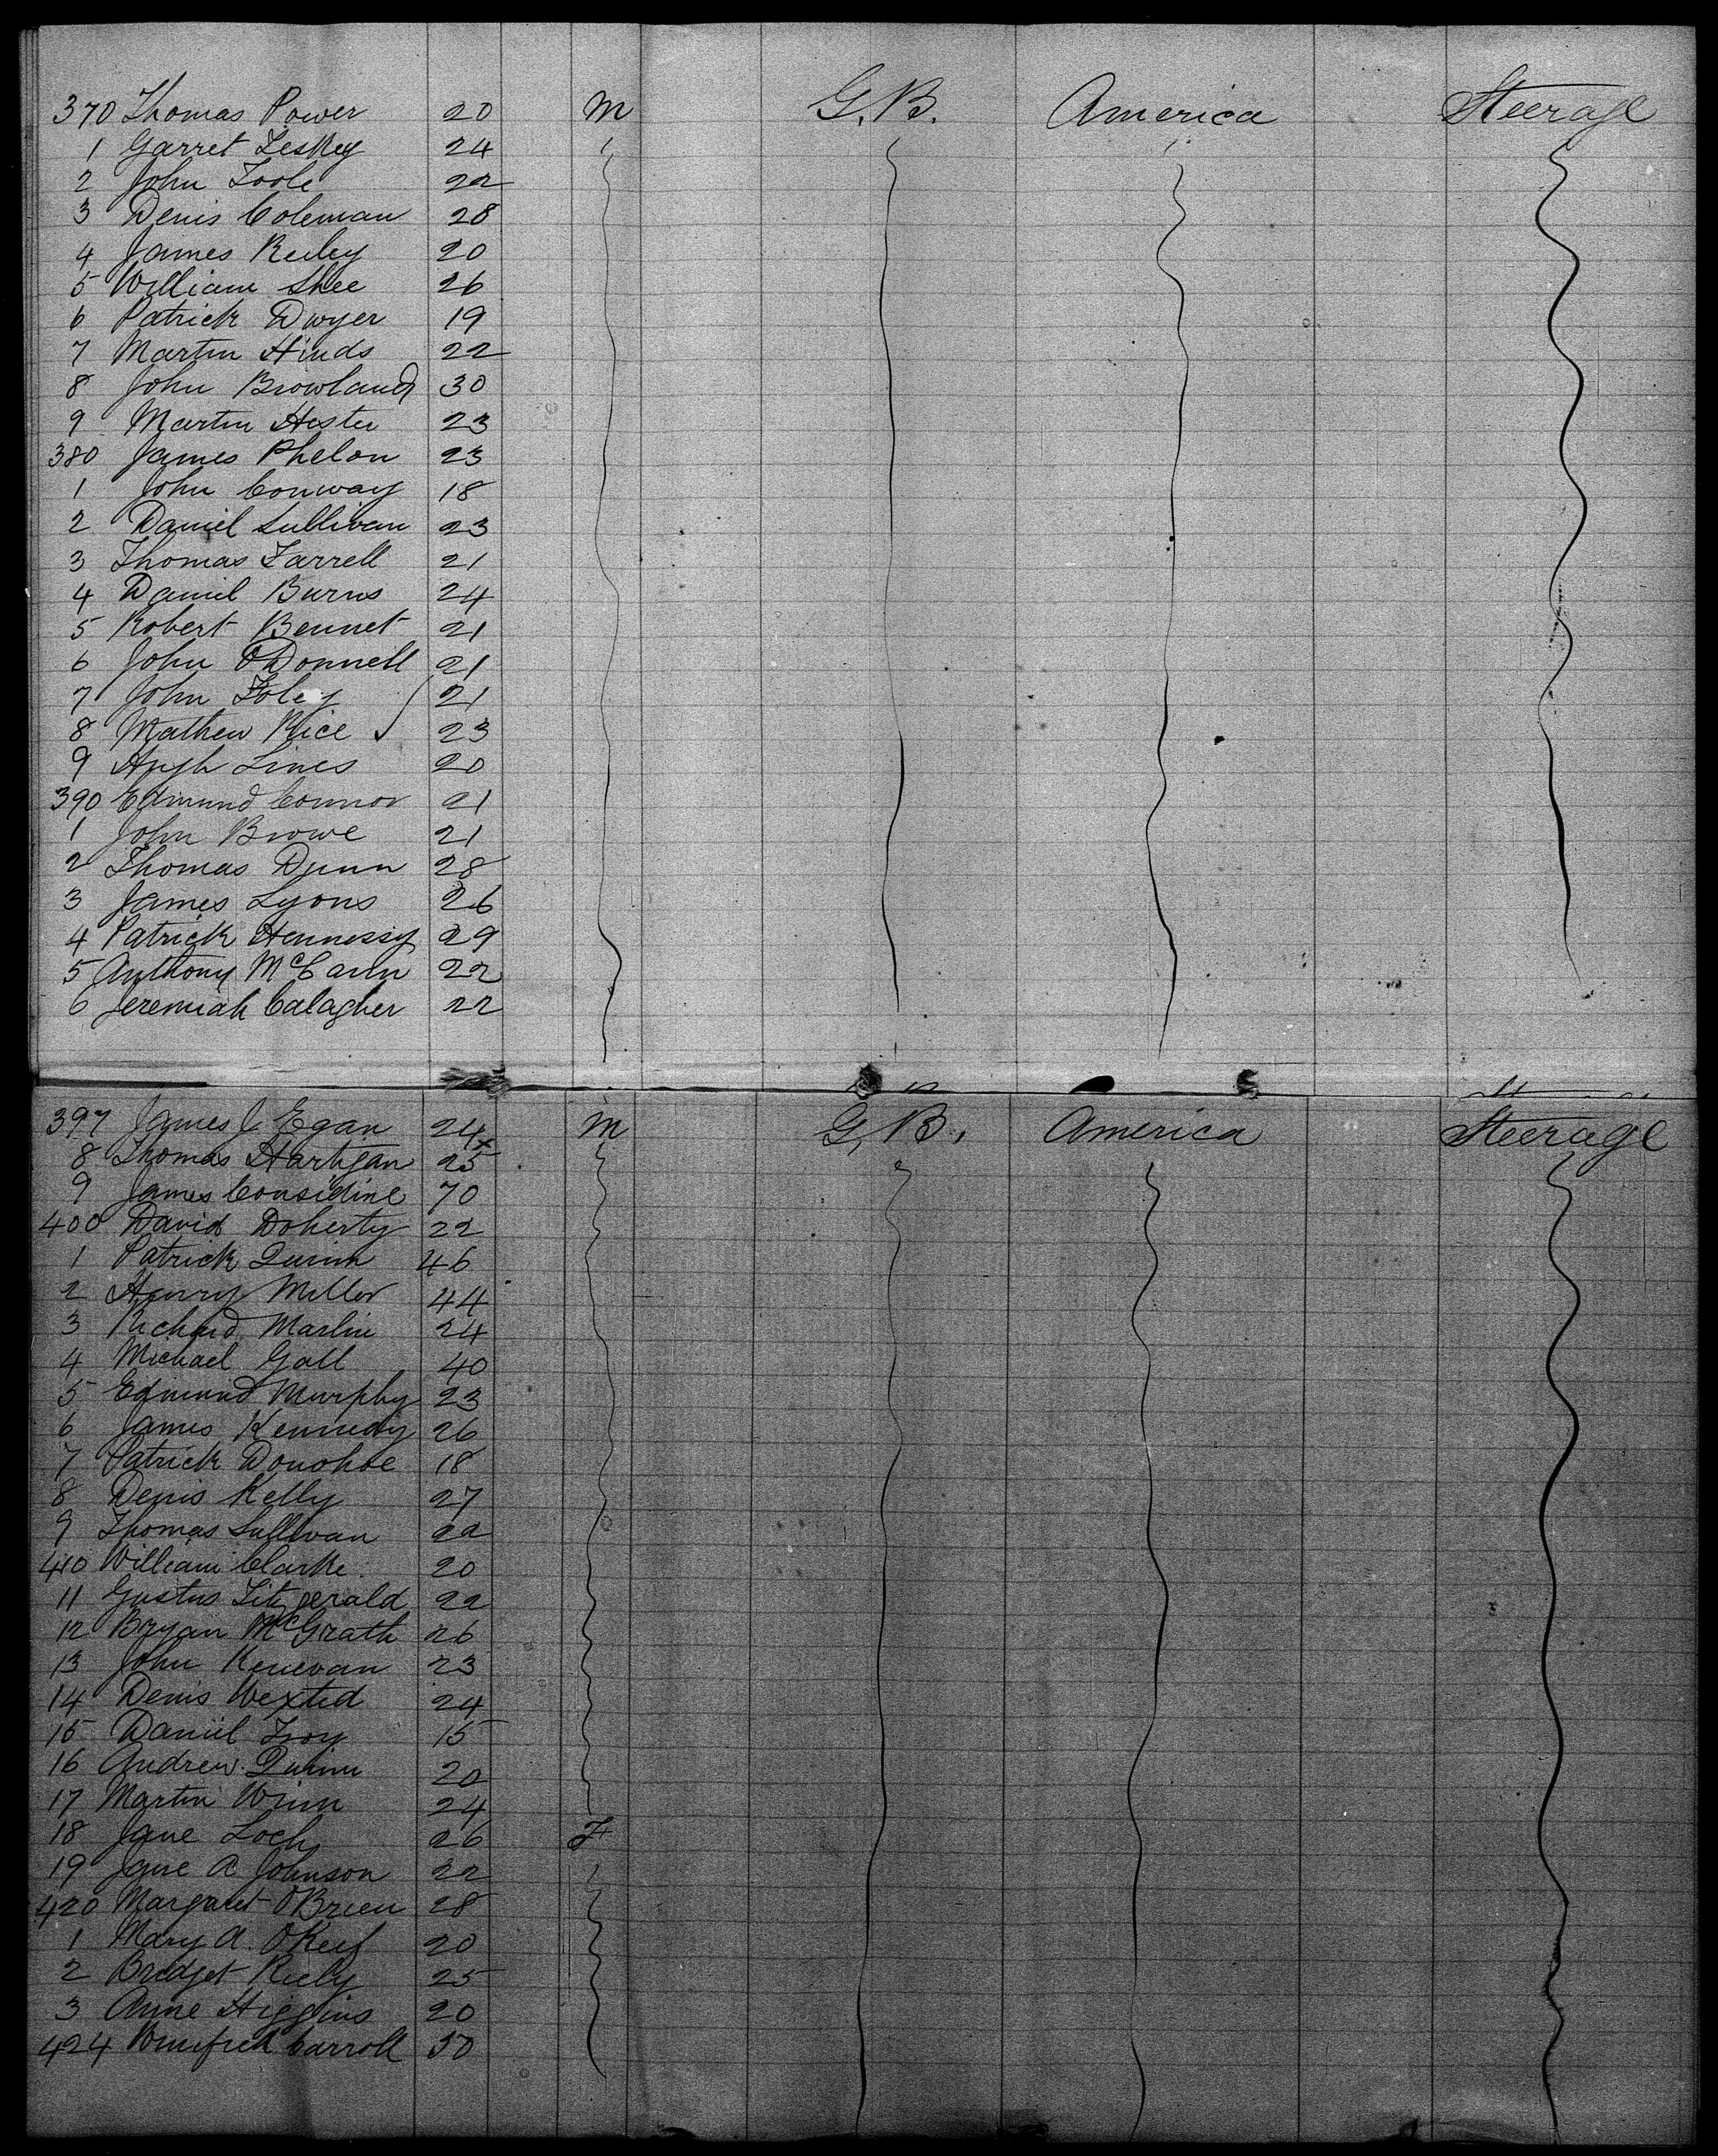 370 Thomas Power 20 m G.B. America Steerage
1 Garret Leskey 24
2 John Toole 22
3 Denis Coleman 28
4 James Reiley 20
5 William Shee 26
6 Patrick Dwyer 19
7 Martin Hinds 22
8 John Browland 30
9 Martin Hester 23
380 James Phelon 23
1 John Conway 18
2 Daniel Sullivan 23
3 Thomas Farrell 21
4 Daniel Burns 24
5 Robert Bennet 21
6 John O'Donnell 21
7 John Foley 21
8 Mathew Rice 23
9 Hugh Lines 20
390 Edmund Connor 21
1 John Browe 21
2 Thomas Dunn 28
3 James Lyons 26
4 Patrick Hennessy 29
5 Anthony McCann 22
6 Jeremiah Calagher 22
397 James J Egan 24 m G.B. America Steerage
8 Thomas Hartigan 25
9 James Considine 70
400 David Doherty 22
1 Patrick Quinn 46
2 Henry Miller 44
3 Richard Marlin 24
4 Michael Gall 40
5 Edmund Murphy 23
6 James Kennedy 26
7 Patrick Donohoe 18
8 Denis Kelly 27
9 Thomas Sullivan 22
410 William Clarke 20
11 Gustus Fitzgerald 22
12 Bryan McGrath 26
13 John Kenevan 23
14 Denis Wexted 24
15 Daniel Troy 15
16 Andrew Quinn 20
17 Martin Winn 24
18 Jane Loch 26 F
19 Jane A Johnson 22
420 Margaret O'Brien 28
1 Mary A. O'Keef 20
2 Bridget Kiely 25
3 Anne Higgins 20
424 Winifred Carroll 50